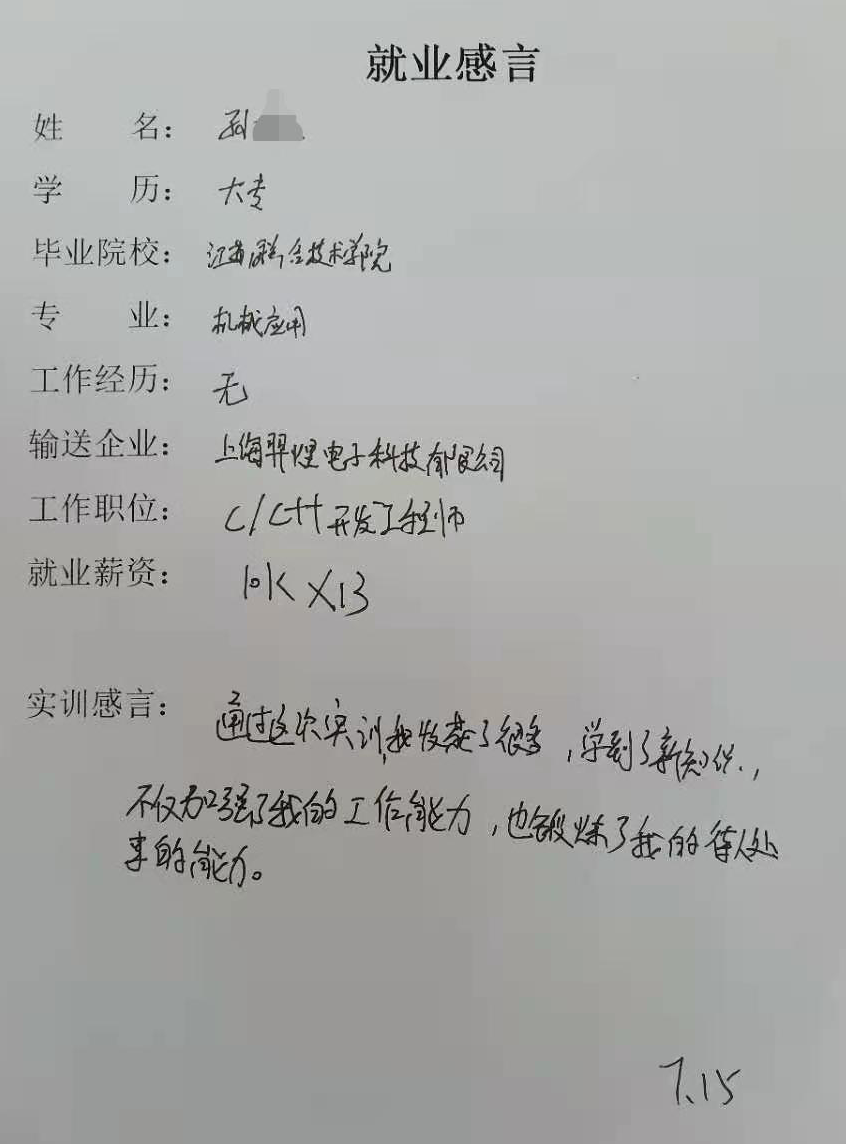 就业感言
姓 名： 孙
学 历： 大专
毕业院校： 江苏联合技术学院
专 业： 机械应用
工作经历： 无
输送企业： 上海羿煜电子科技有限公司
工作职位： C/C++开发工程师
就业薪资： 10K X13
实训感言： 通过这次实训,我收获了很多，学到了新知识，
不仅加强了我的工作能力，也锻炼了我的待人处
事的能力。
7.15